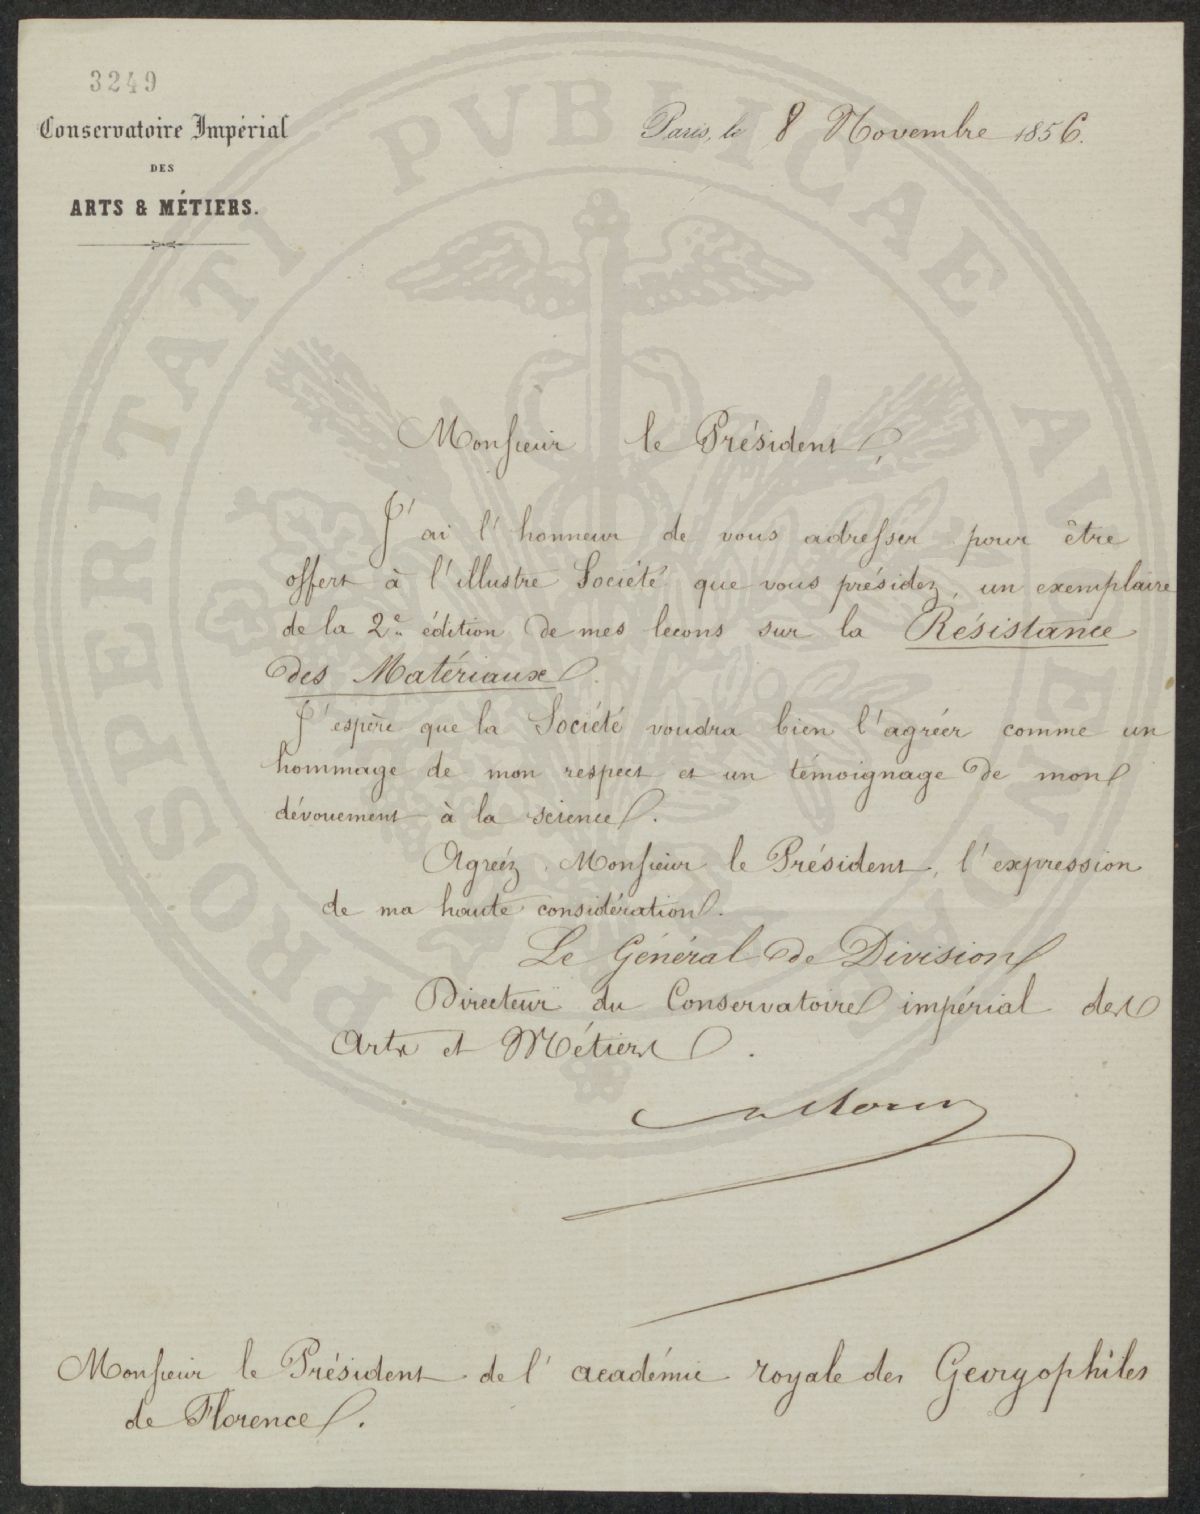 3249
Conservatoire Impérial
DES
ARTS & MÉTIERS.
Paris, le 8 Novembre 1856.
PROSPERITATI PVBLICAE AVGENDAE
Monsieur le Président,
J'ai l'honneur de vous adresser pour être
offert à l'illustre Société que vous présidez, un exemplaire
de la 2e édition de mes leçons sur la Résistance
des Matériaux.
J'espère que la Société voudra bien l'agréer comme un
hommage de mon respect et un témoignage de mon
dévouement à la science.
Agréez Monsieur le Président, l'expression
de ma haute considération.
Le Général de Division
Directeur du Conservatoire impérial des
Arts et Métiers.
Morin
Monsieur le Président de l'académie royale des Georgophiles
de Florence.